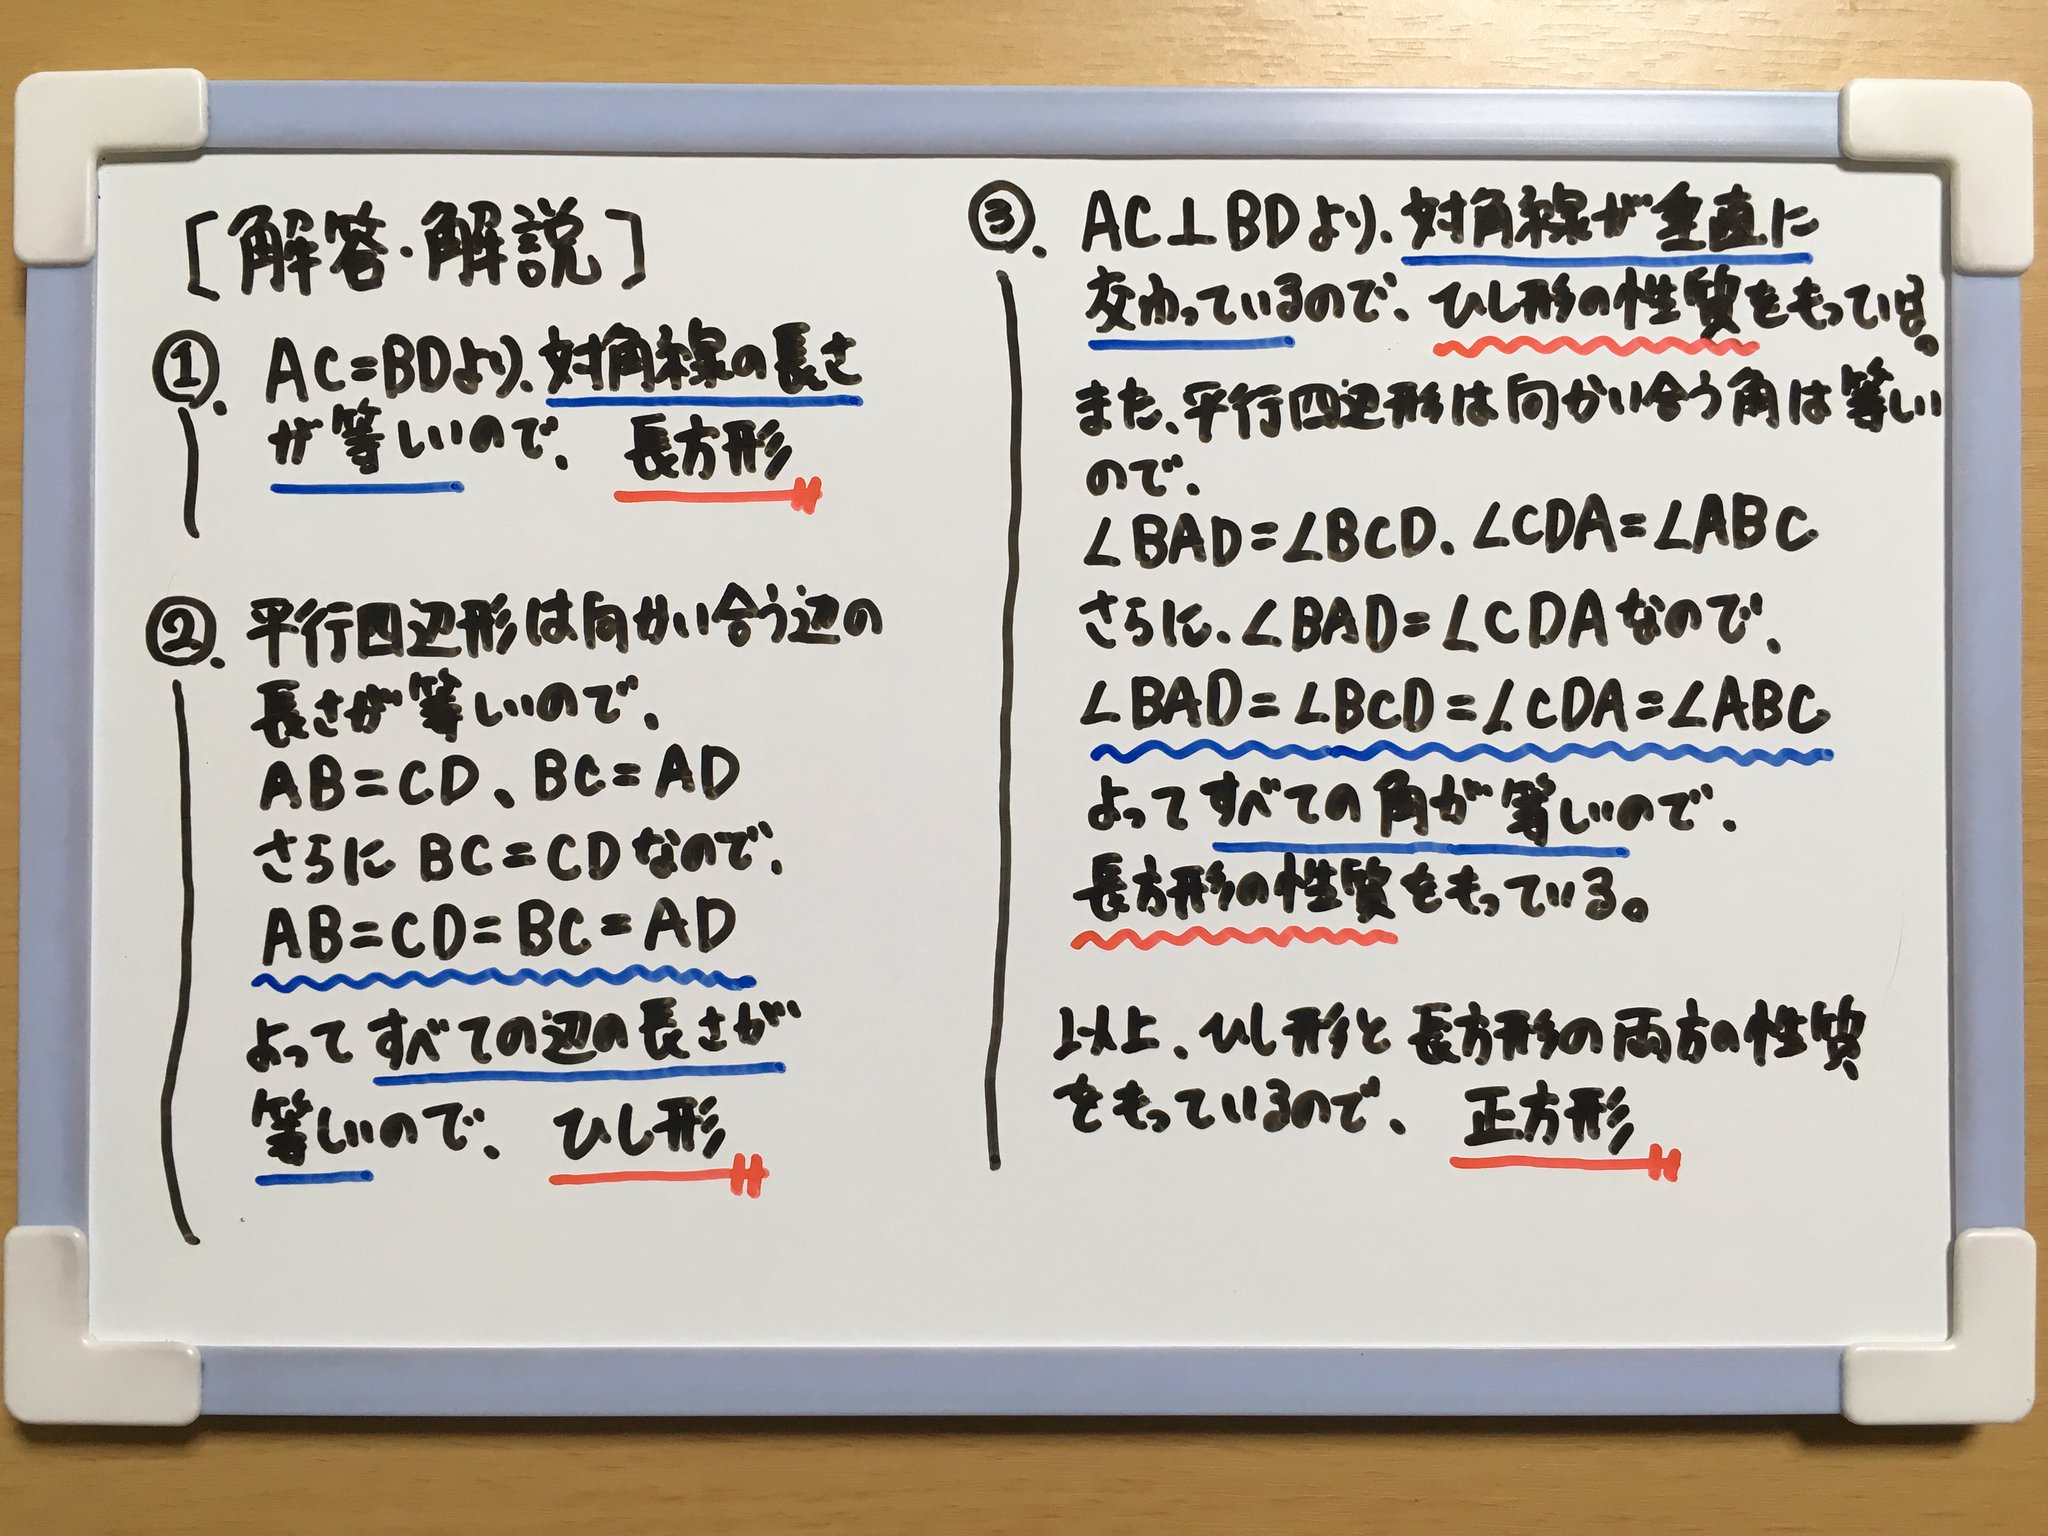 [解答・解説]
①. AC=BDより、対角線の長さ
が等しいので、 長方形
②. 平行四辺形は向かい合う辺の
長さが等しいので、
AB=CD、BC=AD
さらに BC=CDなので、
AB=CD=BC=AD
よってすべての辺の長さが
等しいので、 ひし形
③. AC⊥BDより、対角線が垂直に
交わっているので、ひし形の性質をもっている。
また、平行四辺形は向かい合う角は等しい
ので、
∠BAD=∠BCD、∠CDA=∠ABC
さらに、∠BAD=∠CDAなので、
∠BAD=∠BCD=∠CDA=∠ABC
よってすべての角が等しいので、
長方形の性質をもっている。
以上、ひし形と長方形の両方の性質
をもっているので、 正方形